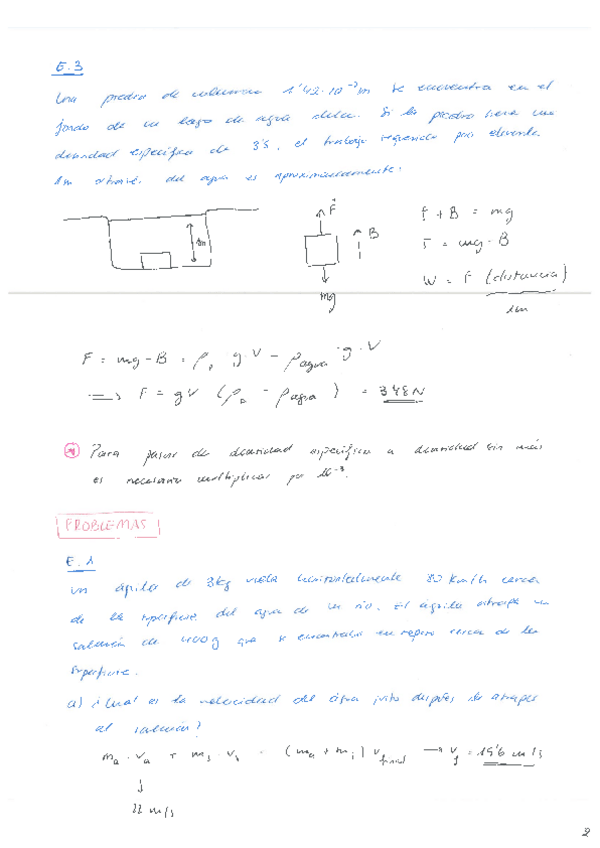 E.3
Una piedra de volumen 1'42·10⁻²m se encuentra en el
fondo de un lago de agua dulce. Si la piedra tiene una
densidad específica de 3'5, el trabajo requerido por elevarla
1m a través del agua es aproximadamente:
1m
F
B
mg
F + B = mg
F = mg - B
W = F (distancia)
1m
F = mg - B = ρ g·V - ρagua ·g·V
F = gV (ρ - ρagua) = 348N
Para pasar de densidad específica a densidad sin más
es necesario multiplicar por
PROBLEMAS
E.1
Un águila de 3kg vuela horizontalmente 80 km/h cerca
de la superficie del agua de un río. El águila atrapa un
salmón de 400g que se encontraba en reposo cerca de la
superficie.
a) ¿Cuál es la velocidad del águila justo después de atrapar
al salmón?
ma · va + ms · vs = (ma + ms) vfinal → vf = 19'6 m/s
22 m/s
2